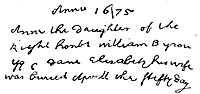 Anno 1675
Anne the Daughter of the
Right honble William Byron
& Dame Elizabeth his wife
was buried Aprill the fiefty day